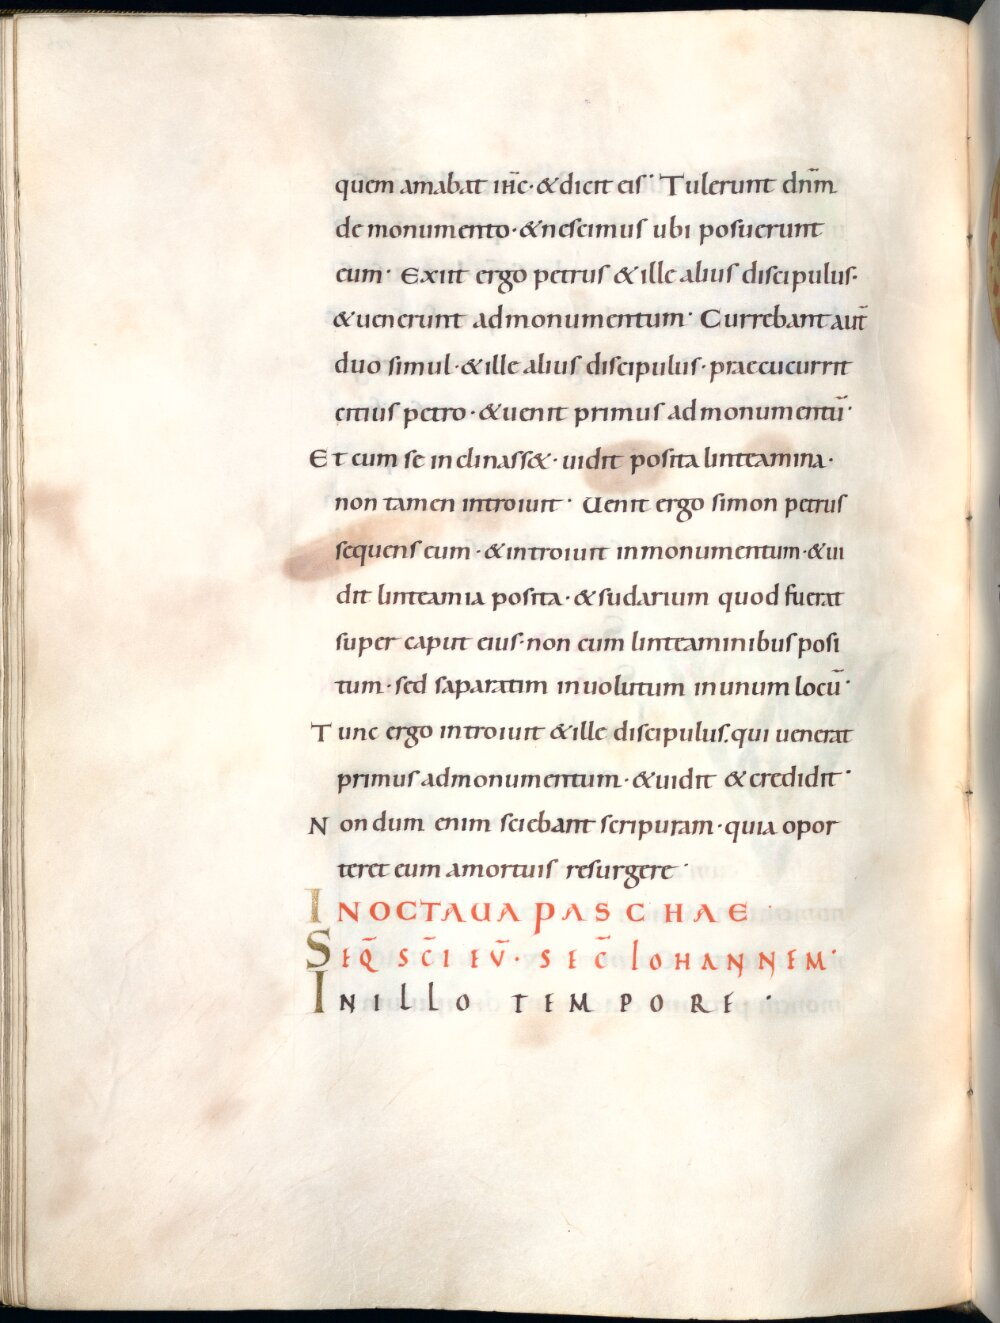 quem amabat ihc̄· & dicit eis· Tulerunt dn̄m
de monumento· & nescimus ubi posuerunt
eum· Exiit ergo petrus & ille alius discipulus·
& uenerunt admonumentum· Currebant aut̄
duo simul· & ille alius discipulus· praecucurrit
citius petro· & uenit primus admonumentū·
Et cum se inclinass&· uidit posita linteamina·
non tamen introiuit· Uenit ergo simon petrus
sequens eum· & introiuit inmonumentum· & ui
dit linteamia posita· & sudarium quod fuerat
super caput eius· non cum linteaminibus posi
tum· sed saparatim inuolutum inunum locū·
Tunc ergo introiuit & ille discipulus· qui uenerat
primus admonumentum· & uidit & credidit·
Nondum enim sciebant scripuram· quia opor
teret eum amortuis resurgere·
IN OCTAUA PASCHAE·
SEQ̄ SC̄I EŪ· SEC̄ IOHANNEM·
IN ILLO TEMPORE·